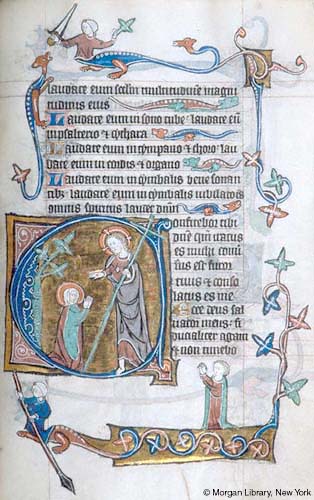 laudate eum scdm multitudinē magni
tudinis eius
Laudate eum in sono tube · laudate eū
in psalterio & cythara
Laudate eum in tympano & choro · lau
date eum in cordis & organo
Laudate eum in cymbalis bene sonan
tib; · laudate eum in cymbalis
omnis spiritus laudet dnm
Confitebor tibi
dne qm iratus
es michi
sus est furor
tuus & conso
latus es me
Ecce deus sal
uator meus · fi
ducialiter agam
& non timebo
© Morgan Library, New York